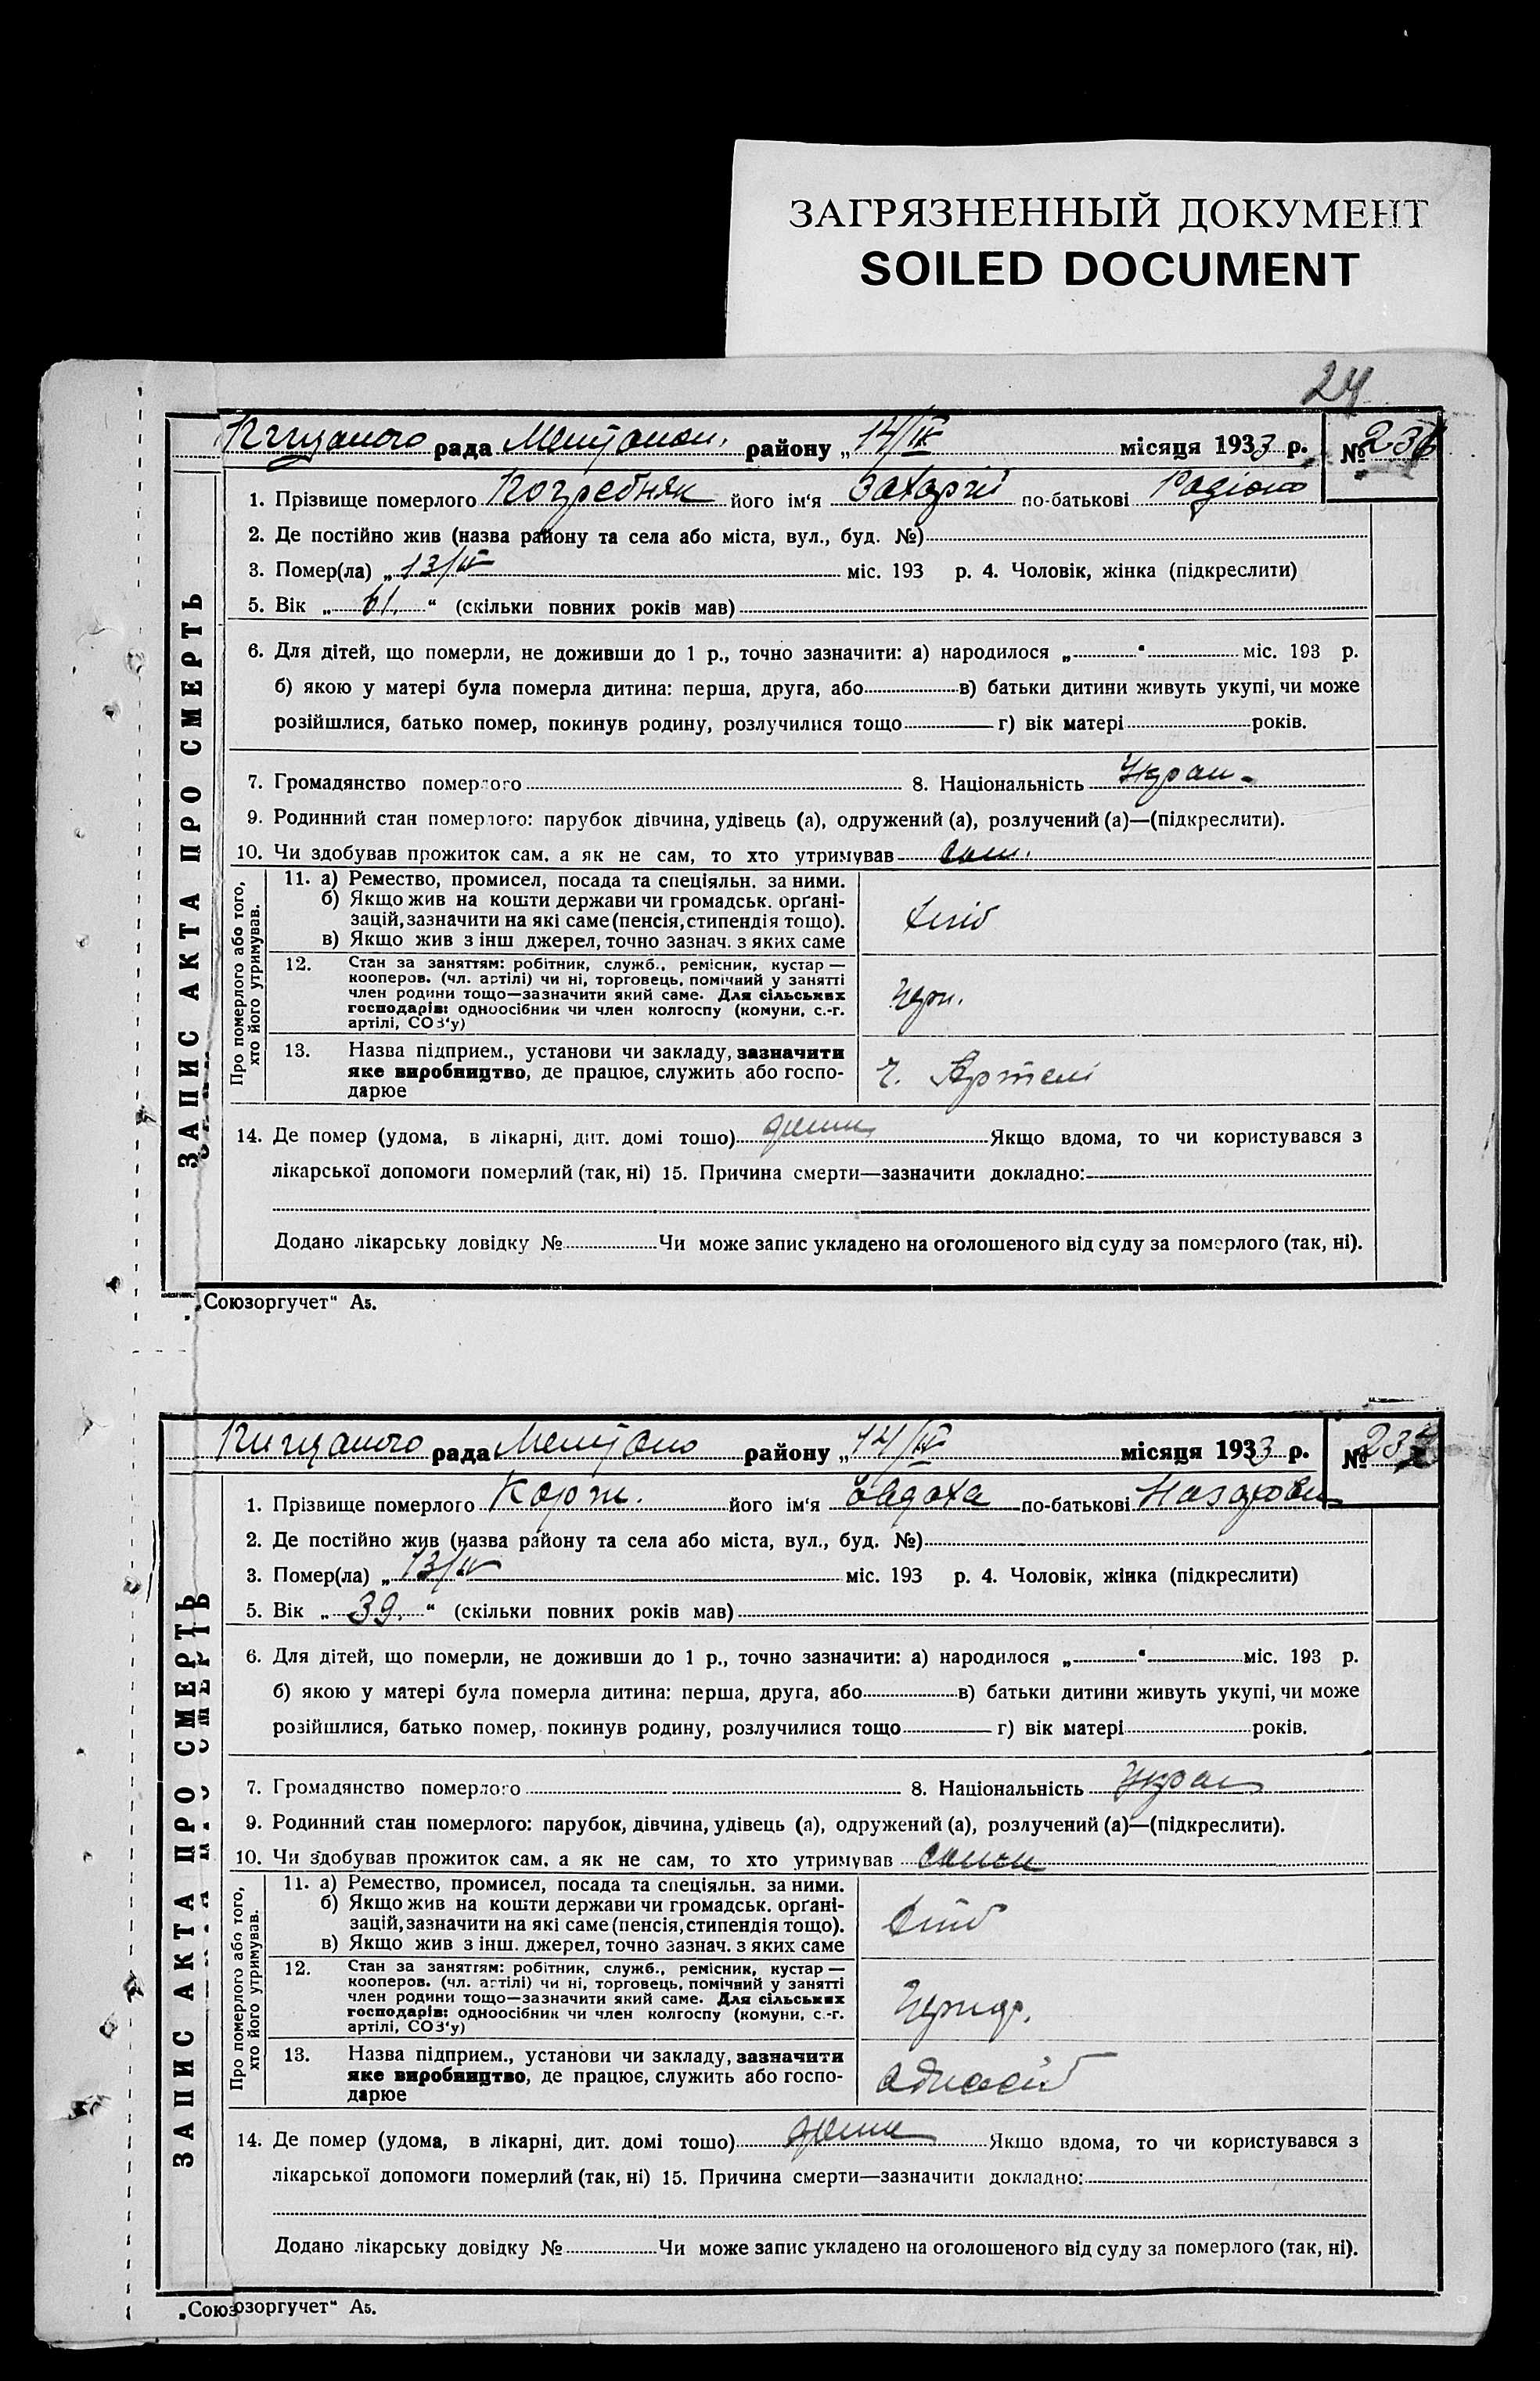 ЗАГРЯЗНЕННЫЙ ДОКУМЕНТ
SOILED DOCUMENT
24
рада району „14/IV місяця 1933 р. № 236
1. Прізвище померлого Погребняк його ім‘я Захарій по-батькові Родіоно
2. Де постійно жив (назва району та села або міста, вул., буд. №)
3. Помер(ла) „13/IV міс. 193 р. 4. Чоловік, жінка (підкреслити)
5. Вік „61.“ (скільки повних років мав)
6. Для дітей, що померли, не доживши до 1 р., точно зазначити: а) народилося „ “ міс. 193 р.
б) якою у матері була померла дитина: перша, друга, або в) батьки дитини живуть укупі, чи може
розійшлися, батько помер, покинув родину, розлучилися тощо г) вік матері років.
7. Громадянство померлого 8. Національність Украи-
9. Родинний стан померлого: парубок дівчина, удівець (а), одружений (а), розлучений (а)—(підкреслити).
10. Чи здобував прожиток сам, а як не сам, то хто утримував сам.
ЗАПИС АКТА ПРО СМЕРТЬ
Про померлого або того, хто його утримував.
11. а) Ремество, промисел, посада та спеціяльн. за ними.
б) Якщо жив на кошти держави чи громадськ. орґані-
зацій, зазначити на які саме (пенсія, стипендія тощо).
в) Якщо жив з інш джерел, точно зазнач. з яких саме
хліб
12. Стан за заняттям: робітник, служб., ремісник, кустар —
кооперов. (чл. артілі) чи ні, торговець, помічний у занятті
член родини тощо—зазначити який саме. Для сільських
господарів: одноосібник чи член колгоспу (комуни, с.-г.
артілі, СОЗ‘у)
13. Назва підприєм., установи чи закладу, зазначити
яке виробництво, де працює, служить або госпо-
дарює
ч. Артелі
14. Де помер (удома, в лікарні, дит. домі тощо) дома Якщо вдома, то чи користувався з
лікарської допомоги померлий (так, ні) 15. Причина смерти—зазначити докладно:
Додано лікарську довідку № Чи може запис укладено на оголошеного від суду за померлого (так, ні).
„Союзоргучет“ А5.
рада району „14/IV місяця 1933 р. № 237
1. Прізвище померлого Корж. його ім‘я Євдоха по-батькові
2. Де постійно жив (назва району та села або міста, вул., буд. №)
3. Помер(ла) „13/IV міс. 193 р. 4. Чоловік, жінка (підкреслити)
5. Вік „39.“ (скільки повних років мав)
6. Для дітей, що померли, не доживши до 1 р., точно зазначити: а) народилося „ “ міс. 193 р.
б) якою у матері була померла дитина: перша, друга, або в) батьки дитини живуть укупі, чи може
розійшлися, батько помер, покинув родину, розлучилися тощо г) вік матері років.
7. Громадянство померлого 8. Національність Украи
9. Родинний стан померлого: парубок, дівчина, удівець (а), одружений (а), розлучений (а)—(підкреслити).
10. Чи здобував прожиток сам, а як не сам, то хто утримував
ЗАПИС АКТА ПРО СМЕРТЬ
Про померлого або того, хто його утримував.
11. а) Ремество, промисел, посада та спеціяльн. за ними.
б) Якщо жив на кошти держави чи громадськ. орґані-
зацій, зазначити на які саме (пенсія, стипендія тощо).
в) Якщо жив з інш. джерел, точно зазнач. з яких саме
хліб
12. Стан за заняттям: робітник, служб., ремісник, кустар —
кооперов. (чл. артілі) чи ні, торговець, помічний у занятті
член родини тощо—зазначити який саме. Для сільських
господарів: одноосібник чи член колгоспу (комуни, с.-г.
артілі, СОЗ‘у)
13. Назва підприєм., установи чи закладу, зазначити
яке виробництво, де працює, служить або госпо-
дарює
одноосіб
14. Де помер (удома, в лікарні, дит. домі тощо) дома Якщо вдома, то чи користувався з
лікарської допомоги померлий (так, ні) 15. Причина смерти—зазначити докладно:
Додано лікарську довідку № Чи може запис укладено на оголошеного від суду за померлого (так, ні).
„Союзоргучет“ А5.